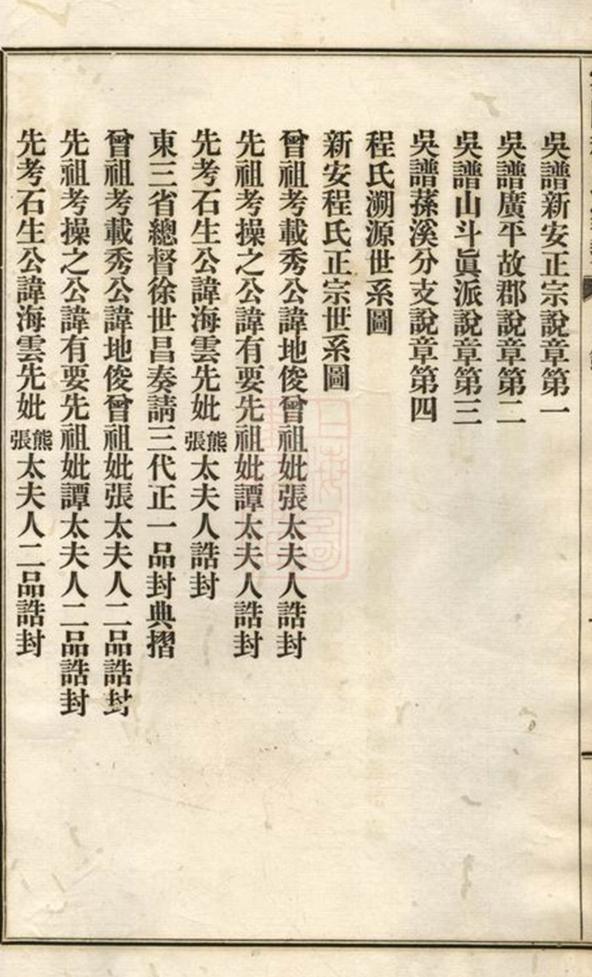 吳譜新安正宗說章第一
吳譜廣平故郡說章第二
吳譜山斗眞派說章第三
吳譜蓀溪分支說章第四
程氏溯源世系圖
新安程氏正宗世系圖
曾祖考載秀公諱地俊曾祖妣張太夫人誥封
先祖考操之公諱有要先祖妣譚太夫人誥封
先考石生公諱海雲先妣熊張太夫人誥封
東三省總督徐世昌奏請三代正一品封典摺
曾祖考載秀公諱地俊曾祖妣張太夫人二品誥封
先祖考操之公諱有要先祖妣譚太夫人二品誥封
先考石生公諱海雲先妣熊張太夫人二品誥封